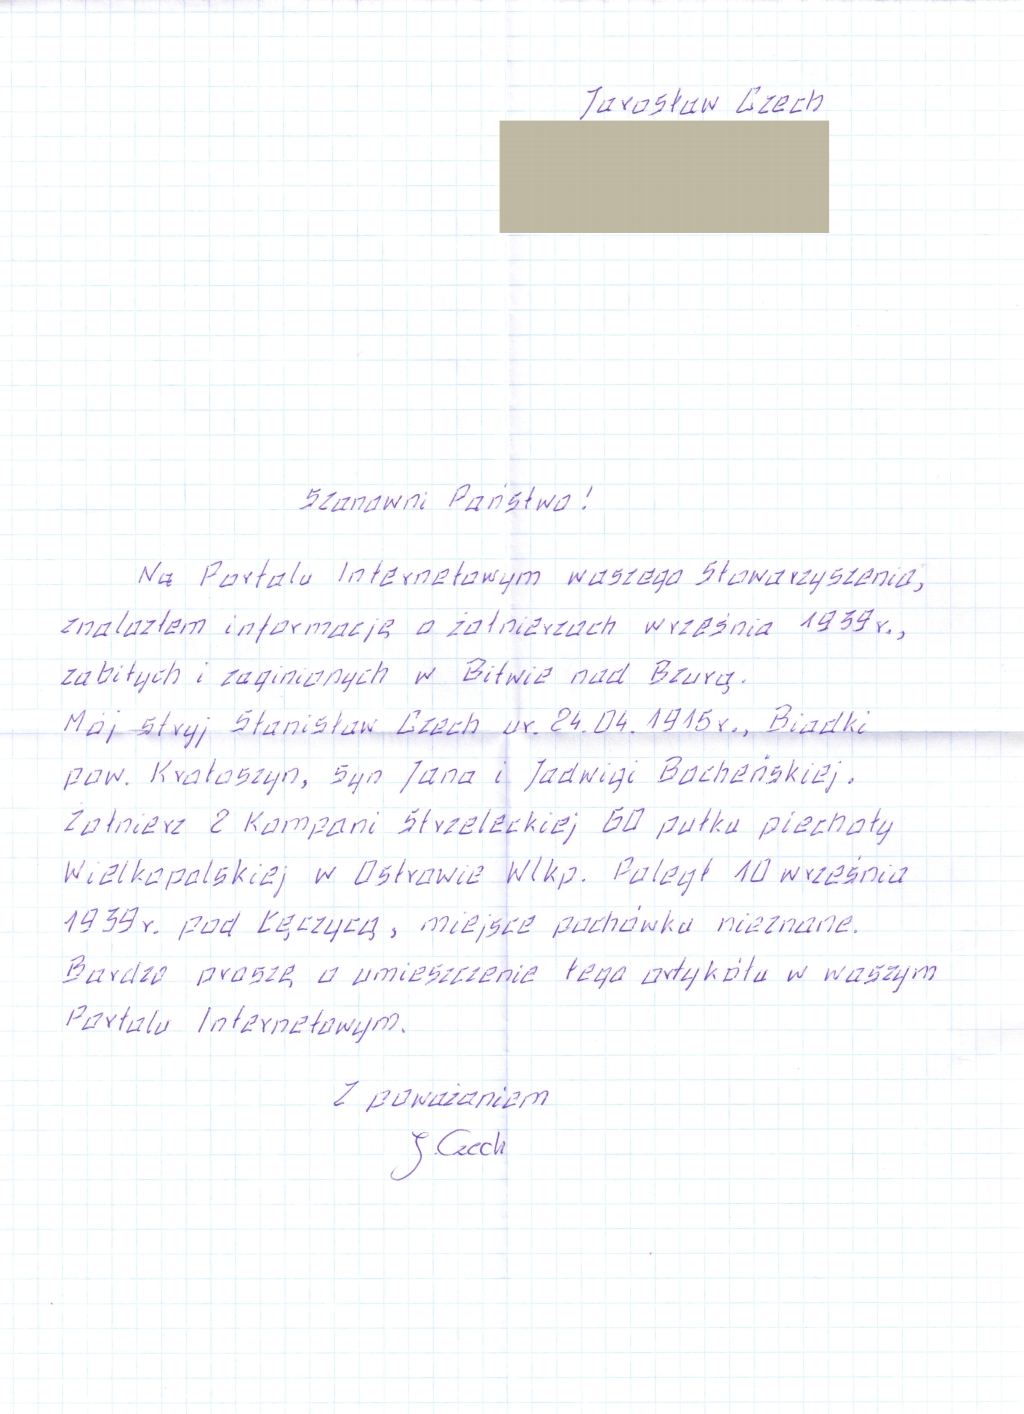 Jarosław Czech
Szanowni Państwo!
Na Portalu Internetowym waszego Stowarzyszenia,
znalazłem informację o żołnierzach września 1939r.,
zabitych i zaginionych w Bitwie nad Bzurą.
Mój stryj Stanisław Czech ur. 24.04.1915r., Biadki
pow. Krotoszyn, syn Jana i Jadwigi Bocheńskiej.
Żołnierz 2 Kompani Strzeleckiej 60 pułku piechoty
Wielkopolskiej w Ostrowie Wlkp. Poległ 10 września
1939r. pod Łęczycą, miejsce pochówku nieznane.
Bardzo proszę o umieszczenie tego artykółu w waszym
Portalu Internetowym.
Z poważaniem
J. Czech